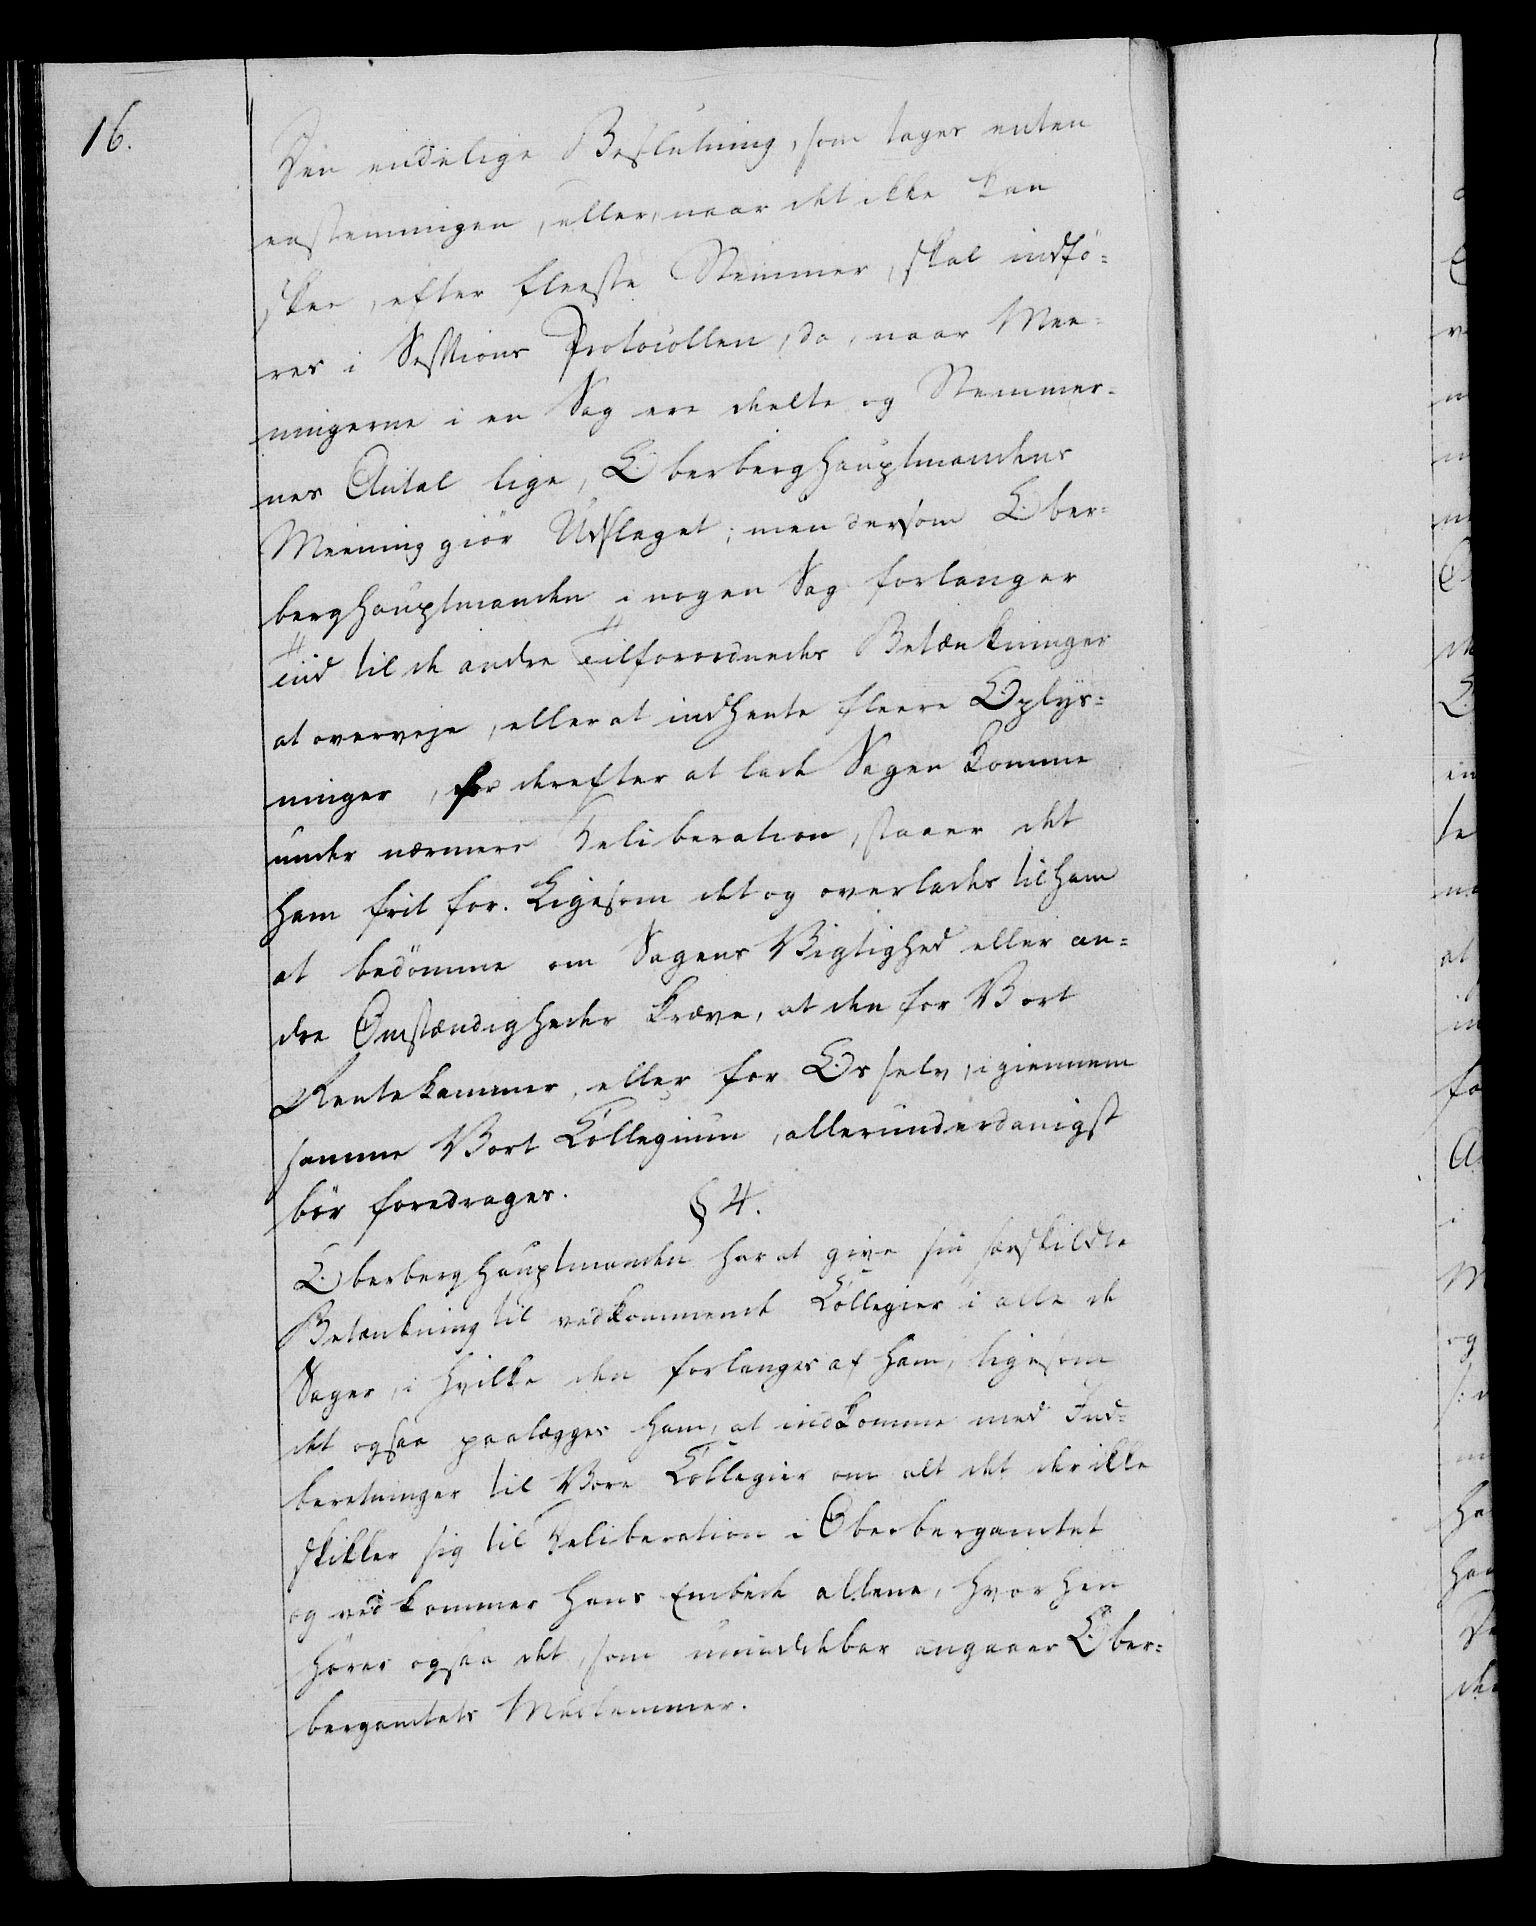 16.
Den endelige Beslutning, som tages enten
eenstemmigen, eller, naar det ikke kan
skee, efter fleeste Stemmer, skal indfö=
res i Sessions Protocollen, da, naar Mee=
ningerne i en Sag ere deelte og Stemmer=
nes Antal lige, Oberberghauptmandens
Meening giör Udslaget; men dersom Ober=
berghauptmanden i nogen Sag forlanger
Tiid til de andre Tilforordnedes Betænkninger
at overveje, eller at indhente fleere Oplys=
ninger, for derefter at lade Sagen komme
under nærmere Deliberation, staaer det
ham frit for. Ligesom det og overlades til ham
at bedömme om Sagens Vigtighed eller an=
dre Omstændigheder kræve, at den for Vort
Rentekammer, eller for Os selv, igiennem
samme Vort Collegium, allerunderdanigst
bör foredrages.
§ 4.
Oberberghauptmanden har at give sin særskildte
Betænkning til vedkommende Collegier i alle de
Sager, i hvilke den forlanges af ham, ligesom
det ogsaa paalægges ham, at indkomme med Ind=
beretninger til Vore Collegier om alt det der ikke
skikker sig til Deliberation i Oberbergamtet
og vedkommer hans Embede allene, hvorhen
hörer ogsaa det, som umiddelbar angaaer Ober=
bergamtets Medlemmer.